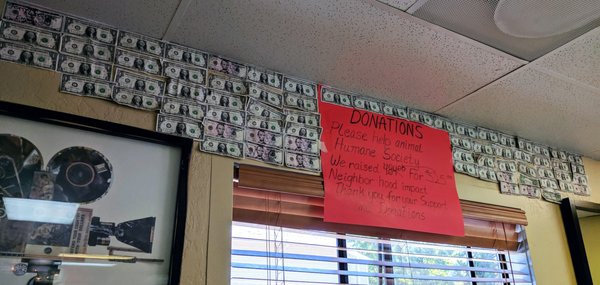 DONATIONS
Please help animal
Humane Society
We raised For
Neighbor hood impact
Thank you for your Support
Donations